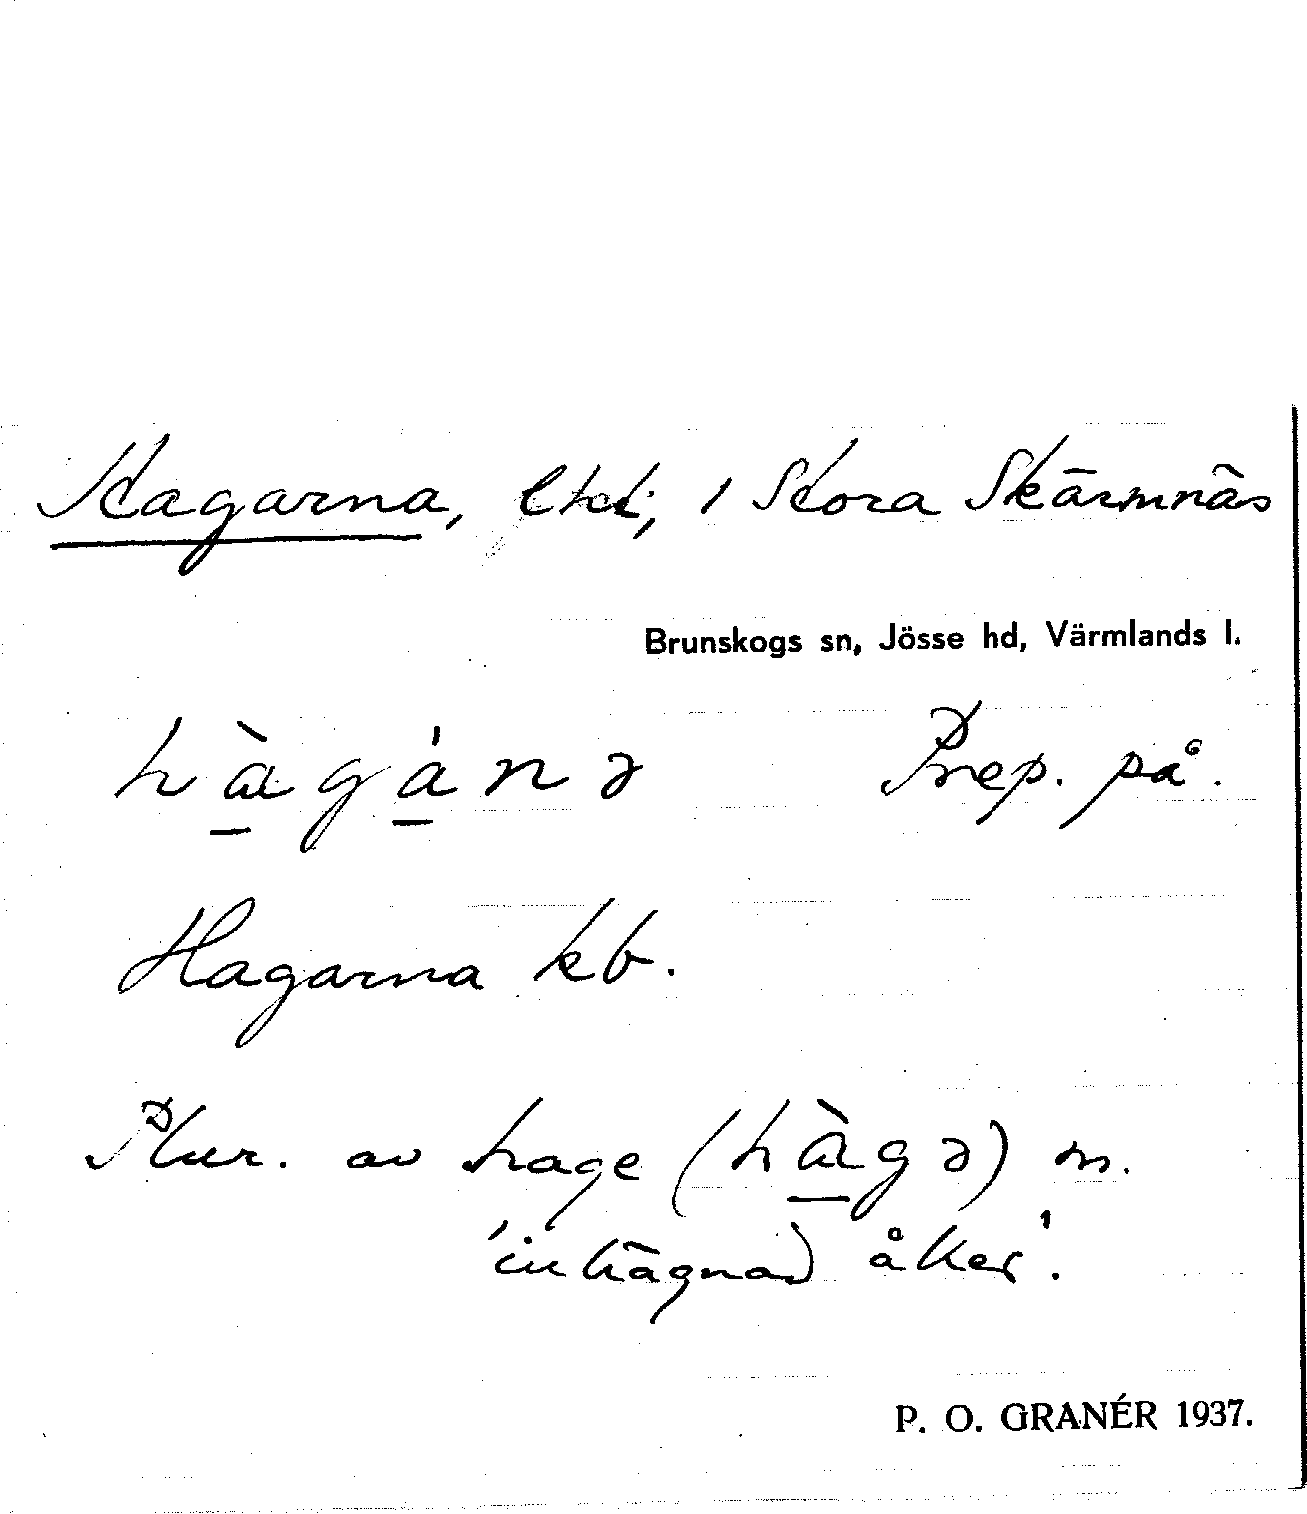 Hagarna, lht, i Stora Skärmnäs
Brunskogs sn, Jösse hd, Värmlands l.
hà̱gá̱nə Prep. på.
Hagarna kb.
Plur. av hage (hà̱gə) m.
'inhägnad åker'.
P. O. GRANÉR 1937.